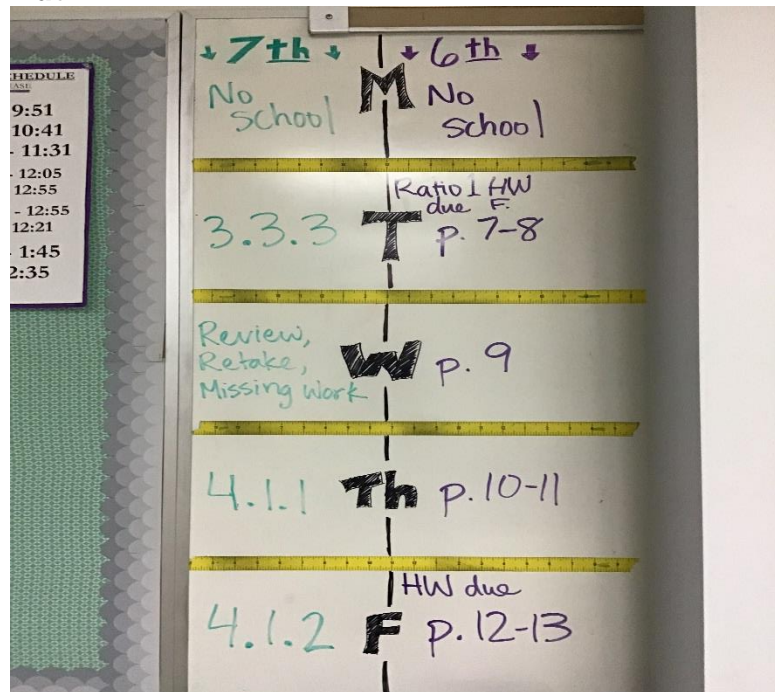 HEDULE
9:51
10:41
- 11:31
- 12:05
12:55
- 12:55
12:21
- 1:45
2:35
↓ 7th ↓
↓ 6th ↓
No
school
M
No
school
3.3.3
T
Ratio 1 HW
due F.
p. 7-8
Review,
Retake,
Missing Work
W
p. 9
4.1.1
Th
p. 10-11
4.1.2
F
HW due
p. 12-13